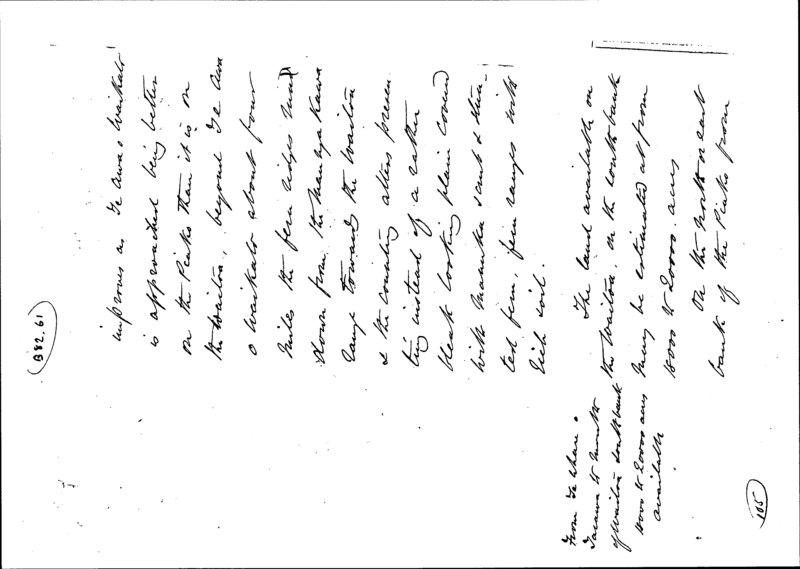 B82.61
improves as Te Awa o Waikato
is approached being better
on the Piako than it is on
the Waitoa, beyond Te Awa
o Waikato about four
miles the fern ridges
down from the Maungakawa
range towards the Waitoa
& the country alters presen
ting instead of a rather
bleak looking plain covered
with Manuka scrub & stun-
ted fern, fern ranges with
rich soil.
The land available on
the Waitoa on the South bank
may be estimated at from
15000 to 20000 acres
On the North or east
bank of the Piako from
From
to mouth
of Waitoa South bank
15000 to 20000 acres
available
105